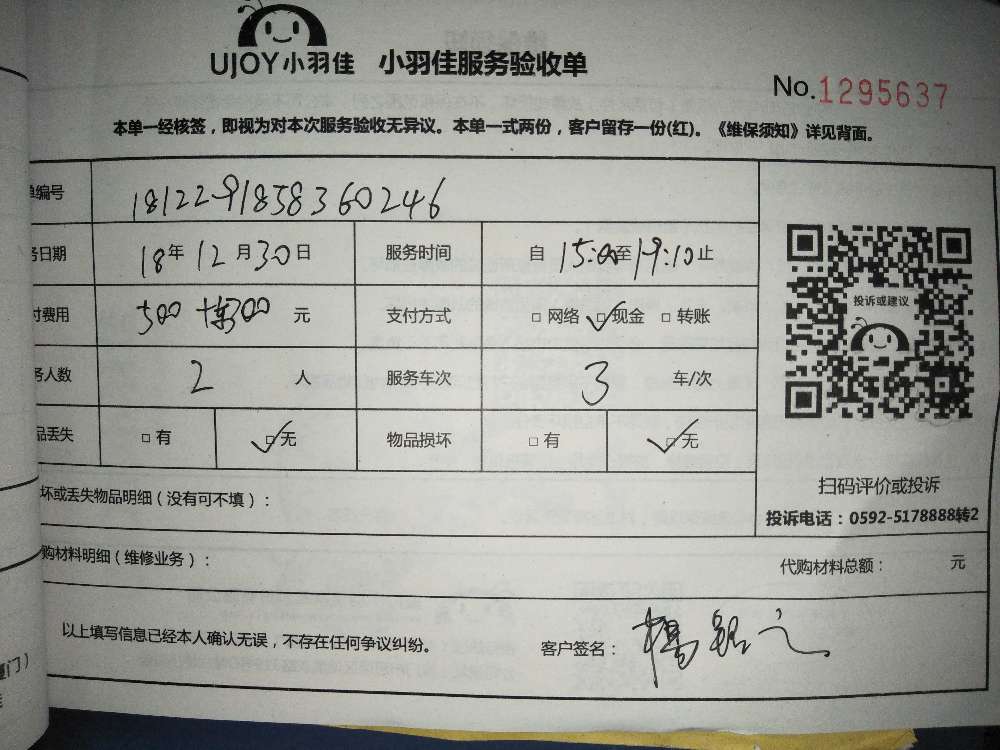 UJOY小羽佳 小羽佳服务验收单
No.1295637
本单一经核签，即视为对本次服务验收无异议。本单一式两份，客户留存一份(红)。《维保须知》详见背面。
单编号 1812291858360246
务日期 18年12月30日 服务时间 自15:00至19:10止
付费用 500 300元 支付方式 □网络 ☑现金 □转账
务人数 2人 服务车次 3车/次
品丢失 □有 ☑无 物品损坏 □有 ☑无
投诉或建议
扫码评价或投诉
投诉电话：0592-5178888转2
坏或丢失物品明细（没有可不填）：
购材料明细（维修业务）： 代购材料总额： 元
以上填写信息已经本人确认无误，不存在任何争议纠纷。 客户签名：杨
门）